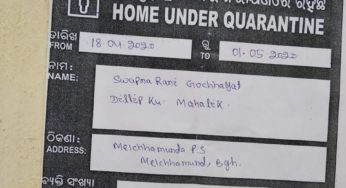 HOME UNDER QUARANTINE
ତାରିଖ ରୁ
FROM 18-04-2020 TO 01-05-2020
ନାମ:
NAME: Swapna Rani Gochhayat
Dillip Ku. Mahalik.
ଠିକଣା:
ADDRESS: Melchhamunda P.S
Melchhamund, Bgh.
ବ୍ୟକ୍ତି ସଂଖ୍ୟା